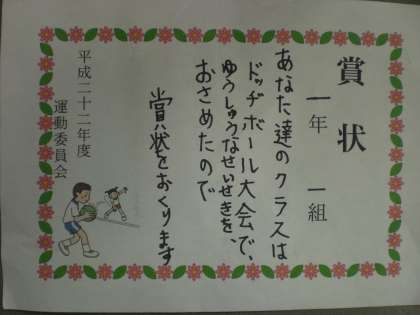 賞状
一年 一組
あなた達のクラスは
ドッヂボール大会で、
ゆうしゅうなせいせきを、
おさめたので
賞状をおくります
平成二十二年度
運動委員会